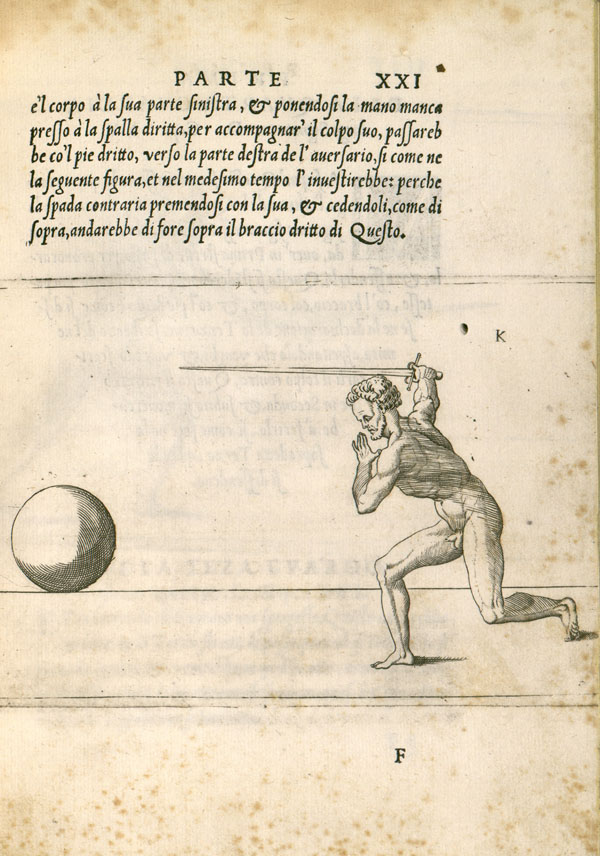 PARTE XXI
e'l corpo à la sua parte sinistra, & ponendosi la mano manca
presso à la spalla diritta, per accompagnar' il colpo suo, passareb
be co'l pie dritto, verso la parte destra de l' auersario, si come ne
la seguente figura, et nel medesimo tempo l' inuestirebbe: perche
la spada contraria premendosi con la sua, & cedendoli, come di
sopra, andarebbe di fore sopra il braccio dritto di Questo.
K
F